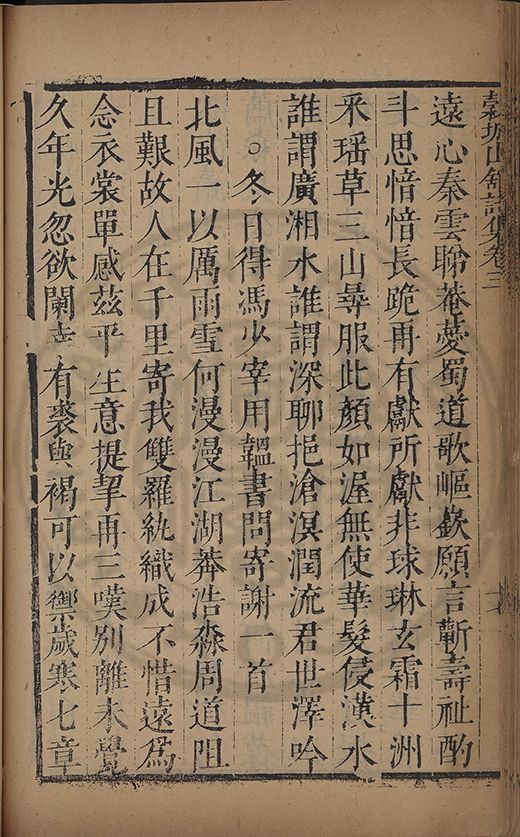 穀城山館詩集卷三
遠心秦雲睇菴薆蜀道歌嶇嶔願言蘄壽祉酌
斗思愔愔長跪再有獻所獻非球琳玄霜十洲
采瑤草三山尋服此顏如渥無使華髮侵漢水
誰謂廣湘水誰謂深聊挹滄溟潤流君世澤吟
○冬日得馮少宰用韞書問寄謝一首
北風一以厲雨雪何漫漫江湖莽浩淼周道阻
且艱故人在千里寄我雙羅紈織成不惜遠爲
念衣裳單感茲平生意提挈再三嘆別離未覺
久年光忽欲闌幸有裘與褐可以禦歲寒七章